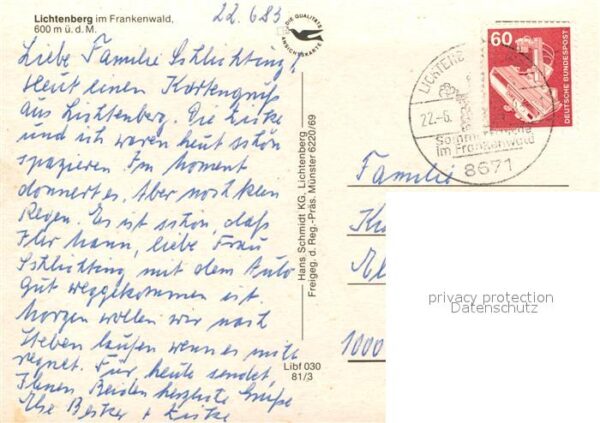 Lichtenberg im Frankenwald,
600 m ü. d. M.
22.6.83
DIE QUALITÄTS
ANSICHTSKARTE
Liebe Familie Schlichting,
Heut einen Kartengruß
aus Lichtenberg. Die
und ich waren heut schön
spazieren. Im Moment
donnert es. Aber noch kein
Regen. Es ist schön, daß
Ihr Mann, liebe Frau
Schlichting, mit dem Auto
gut weggekommen ist.
Morgen wollen wir nach
Steben laufen wenn es nicht
regnet. Für heute sendet
Ihnen Beiden herzlichste Grüße
Hans Schmidt KG, Lichtenberg
Freigeg. d. Reg.-Präs. Münster 6220/69
Libf 030
81/3
60
DEUTSCHE BUNDESPOST
LICHTENB
22.-6.
Sommerfrische
im Frankenwald
8671
Familie
1000
privacy protection
Datenschutz